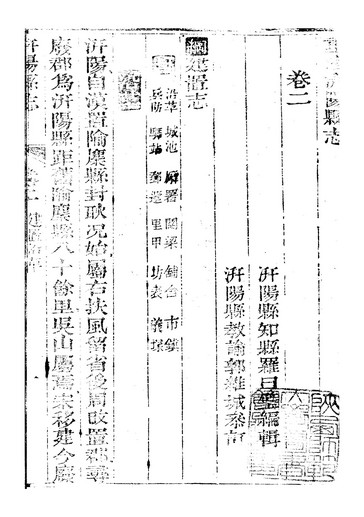 汧陽縣志
卷二
汧陽縣知縣羅曰璧編輯
汧陽縣教諭郭維城參訂
建置志
沿革 城池 廨署 關梁 鋪舍 市鎮
兵防 驛站 里甲 坊表 義塚
汧陽自漢置隃麋縣封耿況始屬右扶風晉省後周改置郡尋
廢郡為汧陽縣距舊隃麋縣八十餘里吳山屬焉宋移建今廢
汧陽縣志